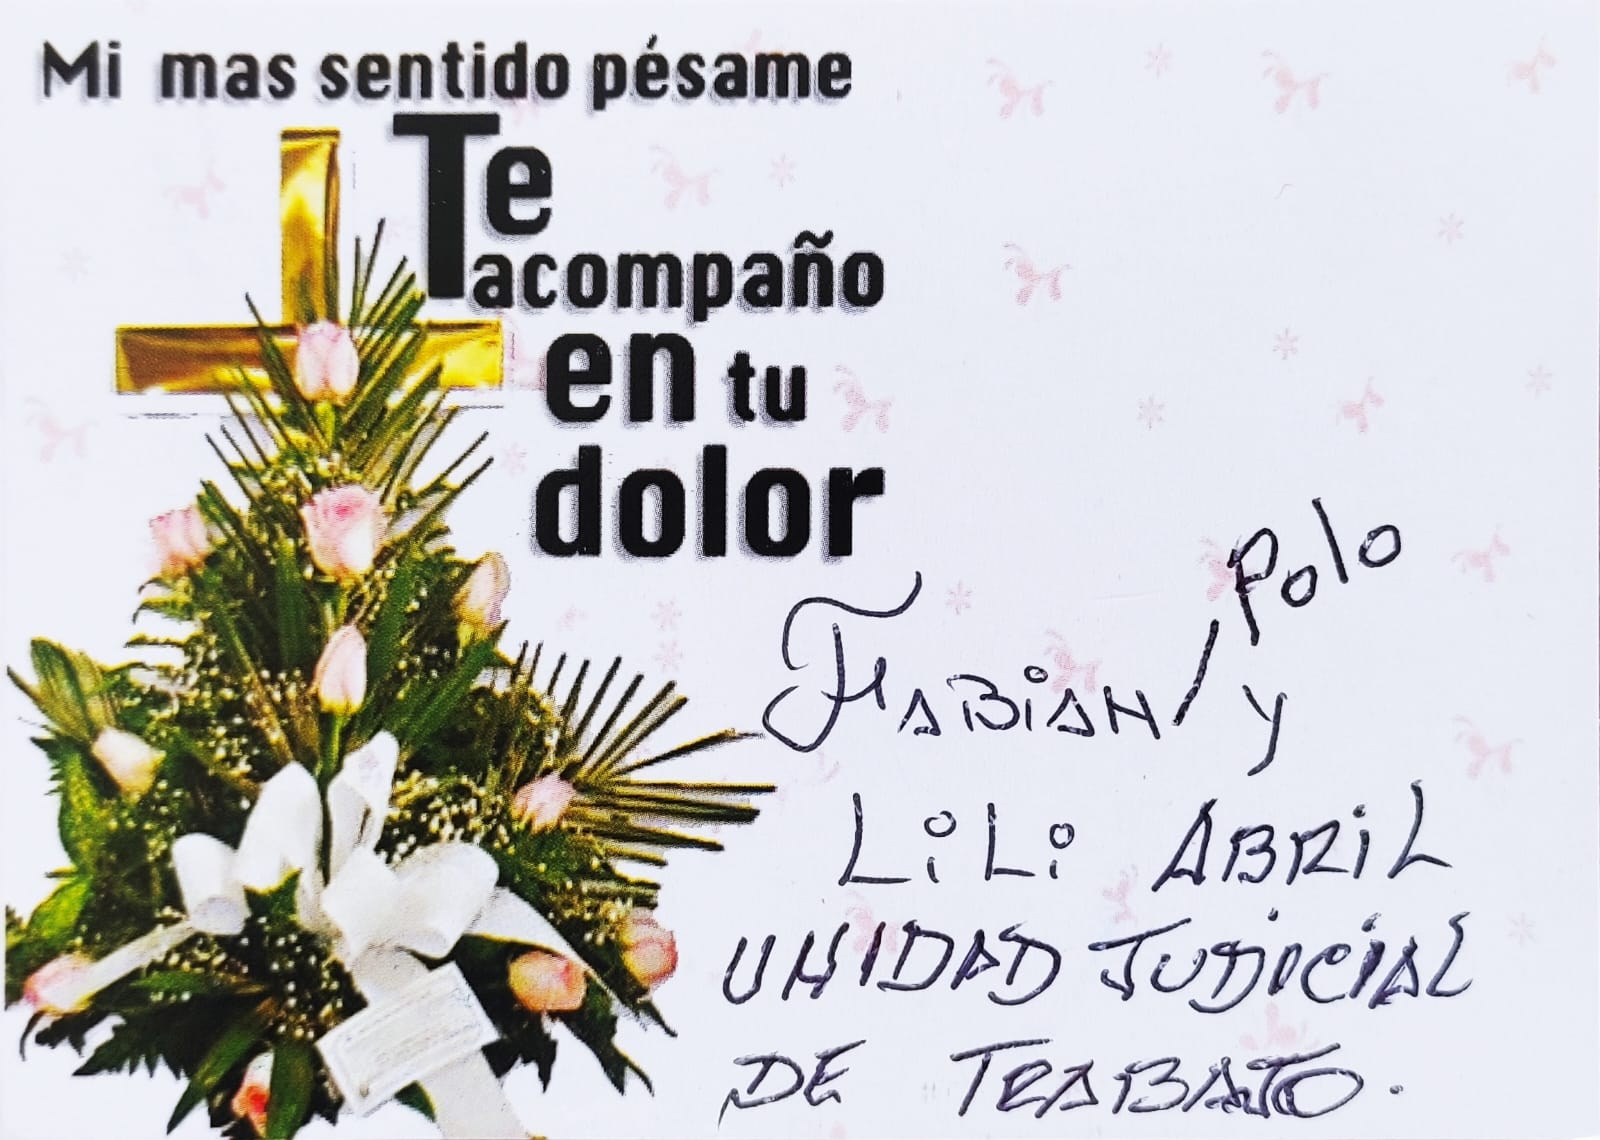 Mi mas sentido pésame
Te
acompaño
en tu
dolor
Polo
FABIAN / y
LiLi ABRIL
UNIDAD JUDICIAL
DE TRABAJO.